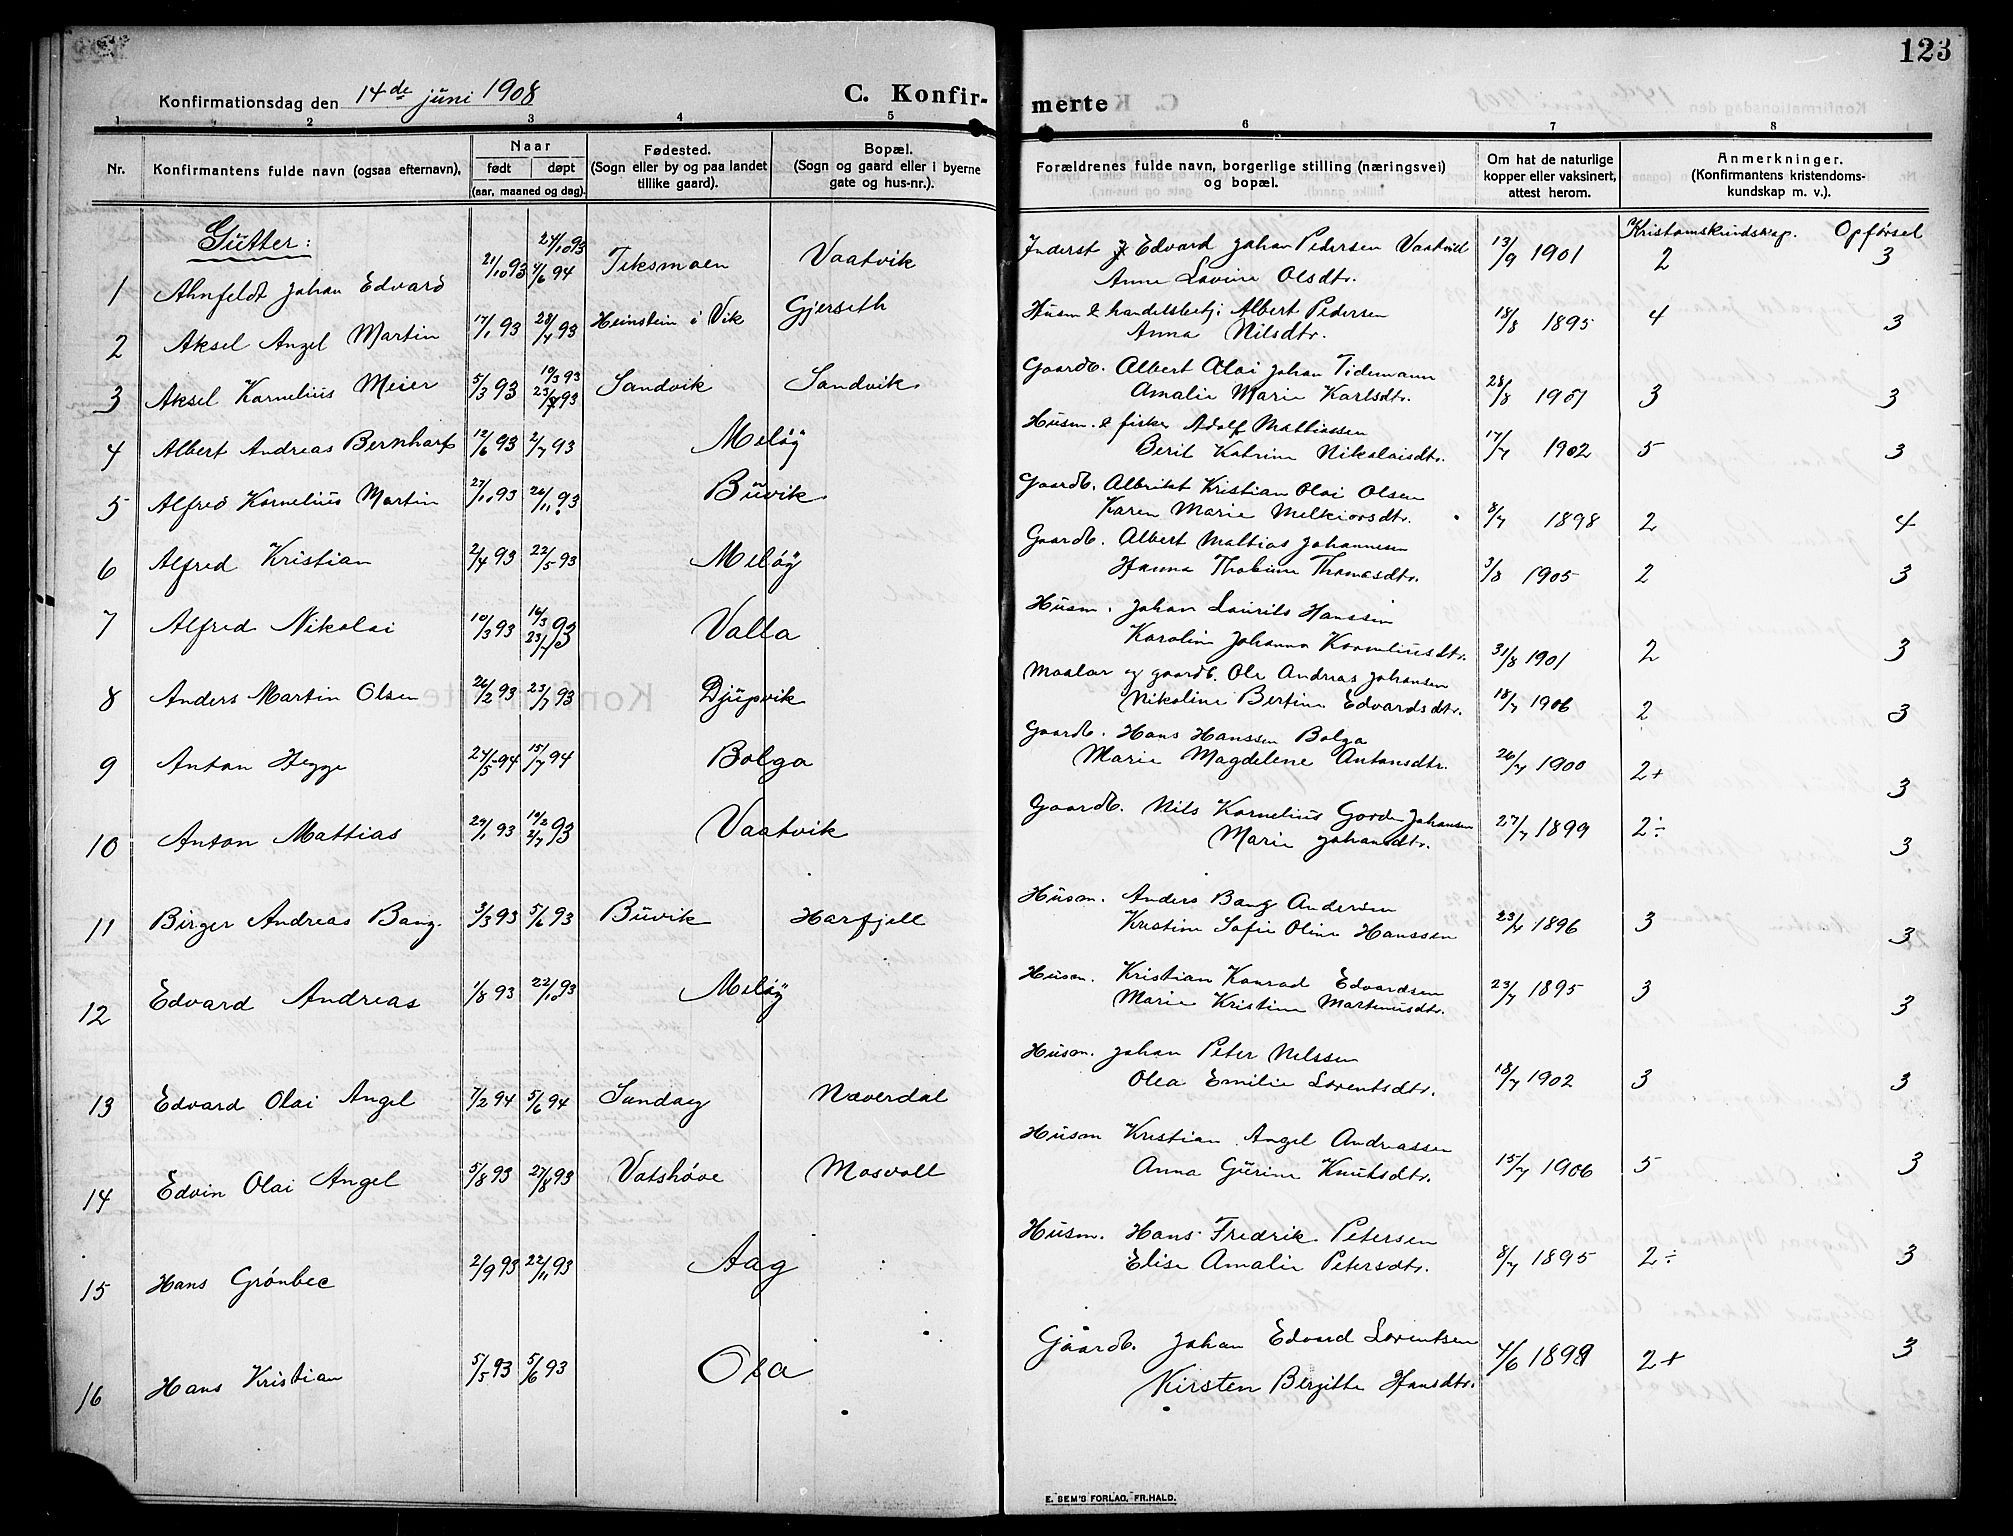 123
Konfirmationsdag den 14de juni 1908 C. Konfir- merte
1 2 3 4 5 6 7 8
Nr. Konfirmantens fulde navn (ogsaa efternavn), Naar født døpt (aar, maaned og dag). Fødested. (Sogn eller by og paa landet tillike gaard). Bopæl. (Sogn og gaard eller i byerne gate og hus-nr.). Forældrenes fulde navn, borgerlige stilling (næringsvei) og bopæl. Om hat de naturlige kopper eller vaksinert, attest herom. Anmerkninger. (Konfirmantens kristendoms- kundskap m. v.).
Gutter: Kristomskundskap. Opførsel
1 Ahnfeldt Johan Edvard 21/10 93 4/6 94 Teksmoen Vaatvik Inderst Edvard Johan Pedersen Vaatvik 13/9 1901 2 3
Anne Lovine Olsdtr.
2 Aksel Angel Martin 17/1 93 28/4 93 Heinstein i Vik Gjerseth Husm & handelsbetj. Albert Pedersen 18/8 1895 4 3
Anna Nilsdtr.
3 Aksel Kornelius Meier 5/3 93 19/3 93 23/7 93 Sandvik Sandvik Gaardb. Albert Olai Johan Tidemann 28/8 1901 3 3
Amalie Marie Karlsdtr.
4 Albert Andreas Bernhart 12/6 93 2/7 93 Meløy Husm. & fisker Adolf Mattiassen 17/7 1902 5 3
Berit Katrine Nikolaisdtr.
5 Alfred Kornelius Martin 27/10 93 26/11 93 Buvik Gaardb. Albrikt Kristian Olai Olsen
Karen Marie Melkiorsdtr. 8/7 1898 2 4
6 Alfred Kristian 2/4 93 22/5 93 Meløy Gaardb. Albert Mattias Johannesen
Hanna Thobine Thomasdtr. 3/8 1905 2 3
7 Alfred Nikolai 10/3 93 16/3 93 23/7 93 Valla Husm. Johan Laurits Hanssen
Karoline Johanna Korneliusdtr. 31/8 1901 2 3
8 Anders Martin Olsen 26/2 93 23/7 93 Djupvik Maalar og gaardb. Ole Andreas Johansen
Nikoline Bertine Edvardsdtr. 18/7 1906 2 3
9 Anton Hegge 24/5 94 15/7 94 Bolga Gaardb. Hans Hanssen Bolga
Marie Magdelene Antonsdtr. 26/7 1900 2+ 3
10 Anton Mattias 29/1 93 19/2 93 2/7 93 Vaatvik Gaardb. Nils Kornelius Gorden Johansen 27/7 1899 2÷ 3
Marie Johansdtr.
11 Birger Andreas Bang. 3/3 93 5/6 93 Buvik Harfjell Husm. Anders Bang Andersen
Kristine Sofie Oline Hanssen 23/4 1896 3 3
12 Edvard Andreas 1/8 93 22/10 93 Meløy Husm. Kristian Konrad Edvardsen 23/7 1895 3 3
Marie Kristine Martinusdtr.
13 Edvard Olai Angel 7/2 94 5/6 94 Sandøy Næverdal Husm. Johan Peter Nilssen
Olea Emilie Lorentsdtr. 18/7 1902 3 3
14 Edvin Olai Angel 5/8 93 27/8 93 Vatshøve Mosvoll Husm Kristian Angel Andreassen
Anna Gurine Knutsdtr. 15/7 1906 5 3
15 Hans Grønbec 2/9 93 22/11 93 Aag Husm. Hans Fredrik Petersen
Elise Amalie Petersdtr. 8/7 1895 2÷ 3
16 Hans Kristian 5/5 93 5/6 93 Osa Gaardb. Johan Edvard Lorentsen 4/6 1899 2+ 3
Kirsten Bergitte Hansdtr.
E. SEM'S FORLAG, FR.HALD.